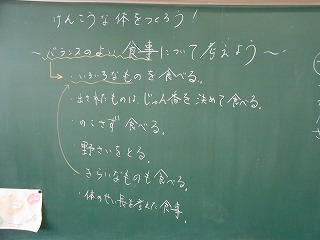 けんこうな体をつくろう!
～バランスのよい食事について考えよう～
・いろいろなものを食べる。
・出されたものは、じゅん番を決めて食べる。
・のこさず食べる。
・野さいをとる。
・きらいなものも食べる。
・体のせい長を考えた食事。